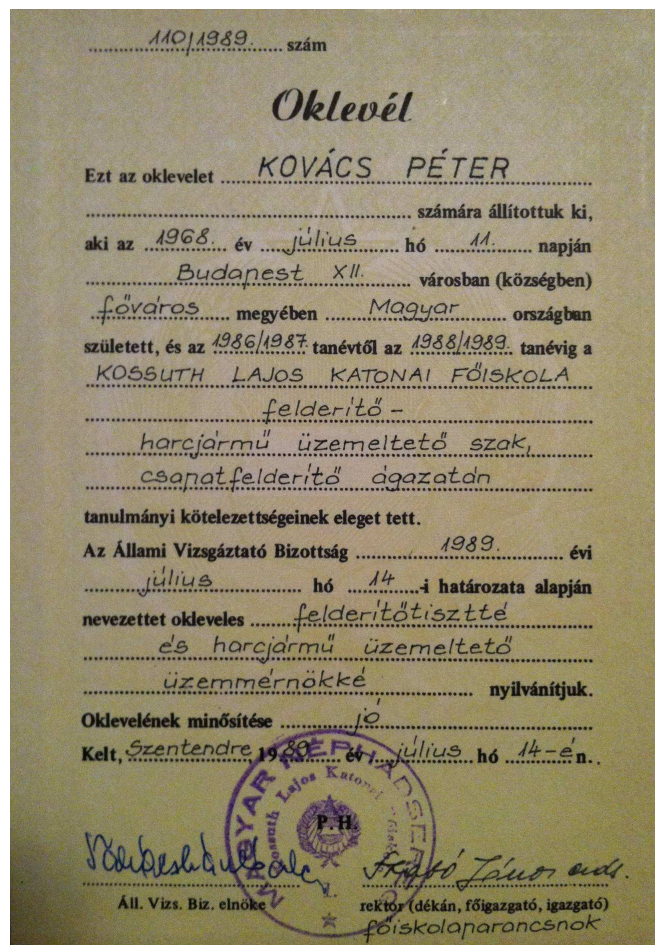 110/1989. szám
Oklevél
Ezt az oklevelet KOVÁCS PÉTER
számára állítottuk ki,
aki az 1968. év július hó 11. napján
Budapest XII. városban (községben)
főváros megyében Magyar országban
született, és az 1986/1987. tanévtől az 1988/1989. tanévig a
KOSSUTH LAJOS KATONAI FŐISKOLA
felderítő-
harcjármű üzemeltető szak,
csapatfelderítő ágazatán
tanulmányi kötelezettségeinek eleget tett.
Az Állami Vizsgáztató Bizottság 1989. évi
július hó 14.-i határozata alapján
nevezettet okleveles felderítőtisztté
és harcjármű üzemeltető
üzemmérnökké nyilvánítjuk.
Oklevelének minősítése jó
Kelt, Szentendre, 1989. év július hó 14-én.
MAGYAR NÉPHADSEREG
Kossuth Lajos Katonai
P. H.
János
Áll. Vizs. Biz. elnöke
rektor (dékán, főigazgató, igazgató)
főiskolaparancsnok